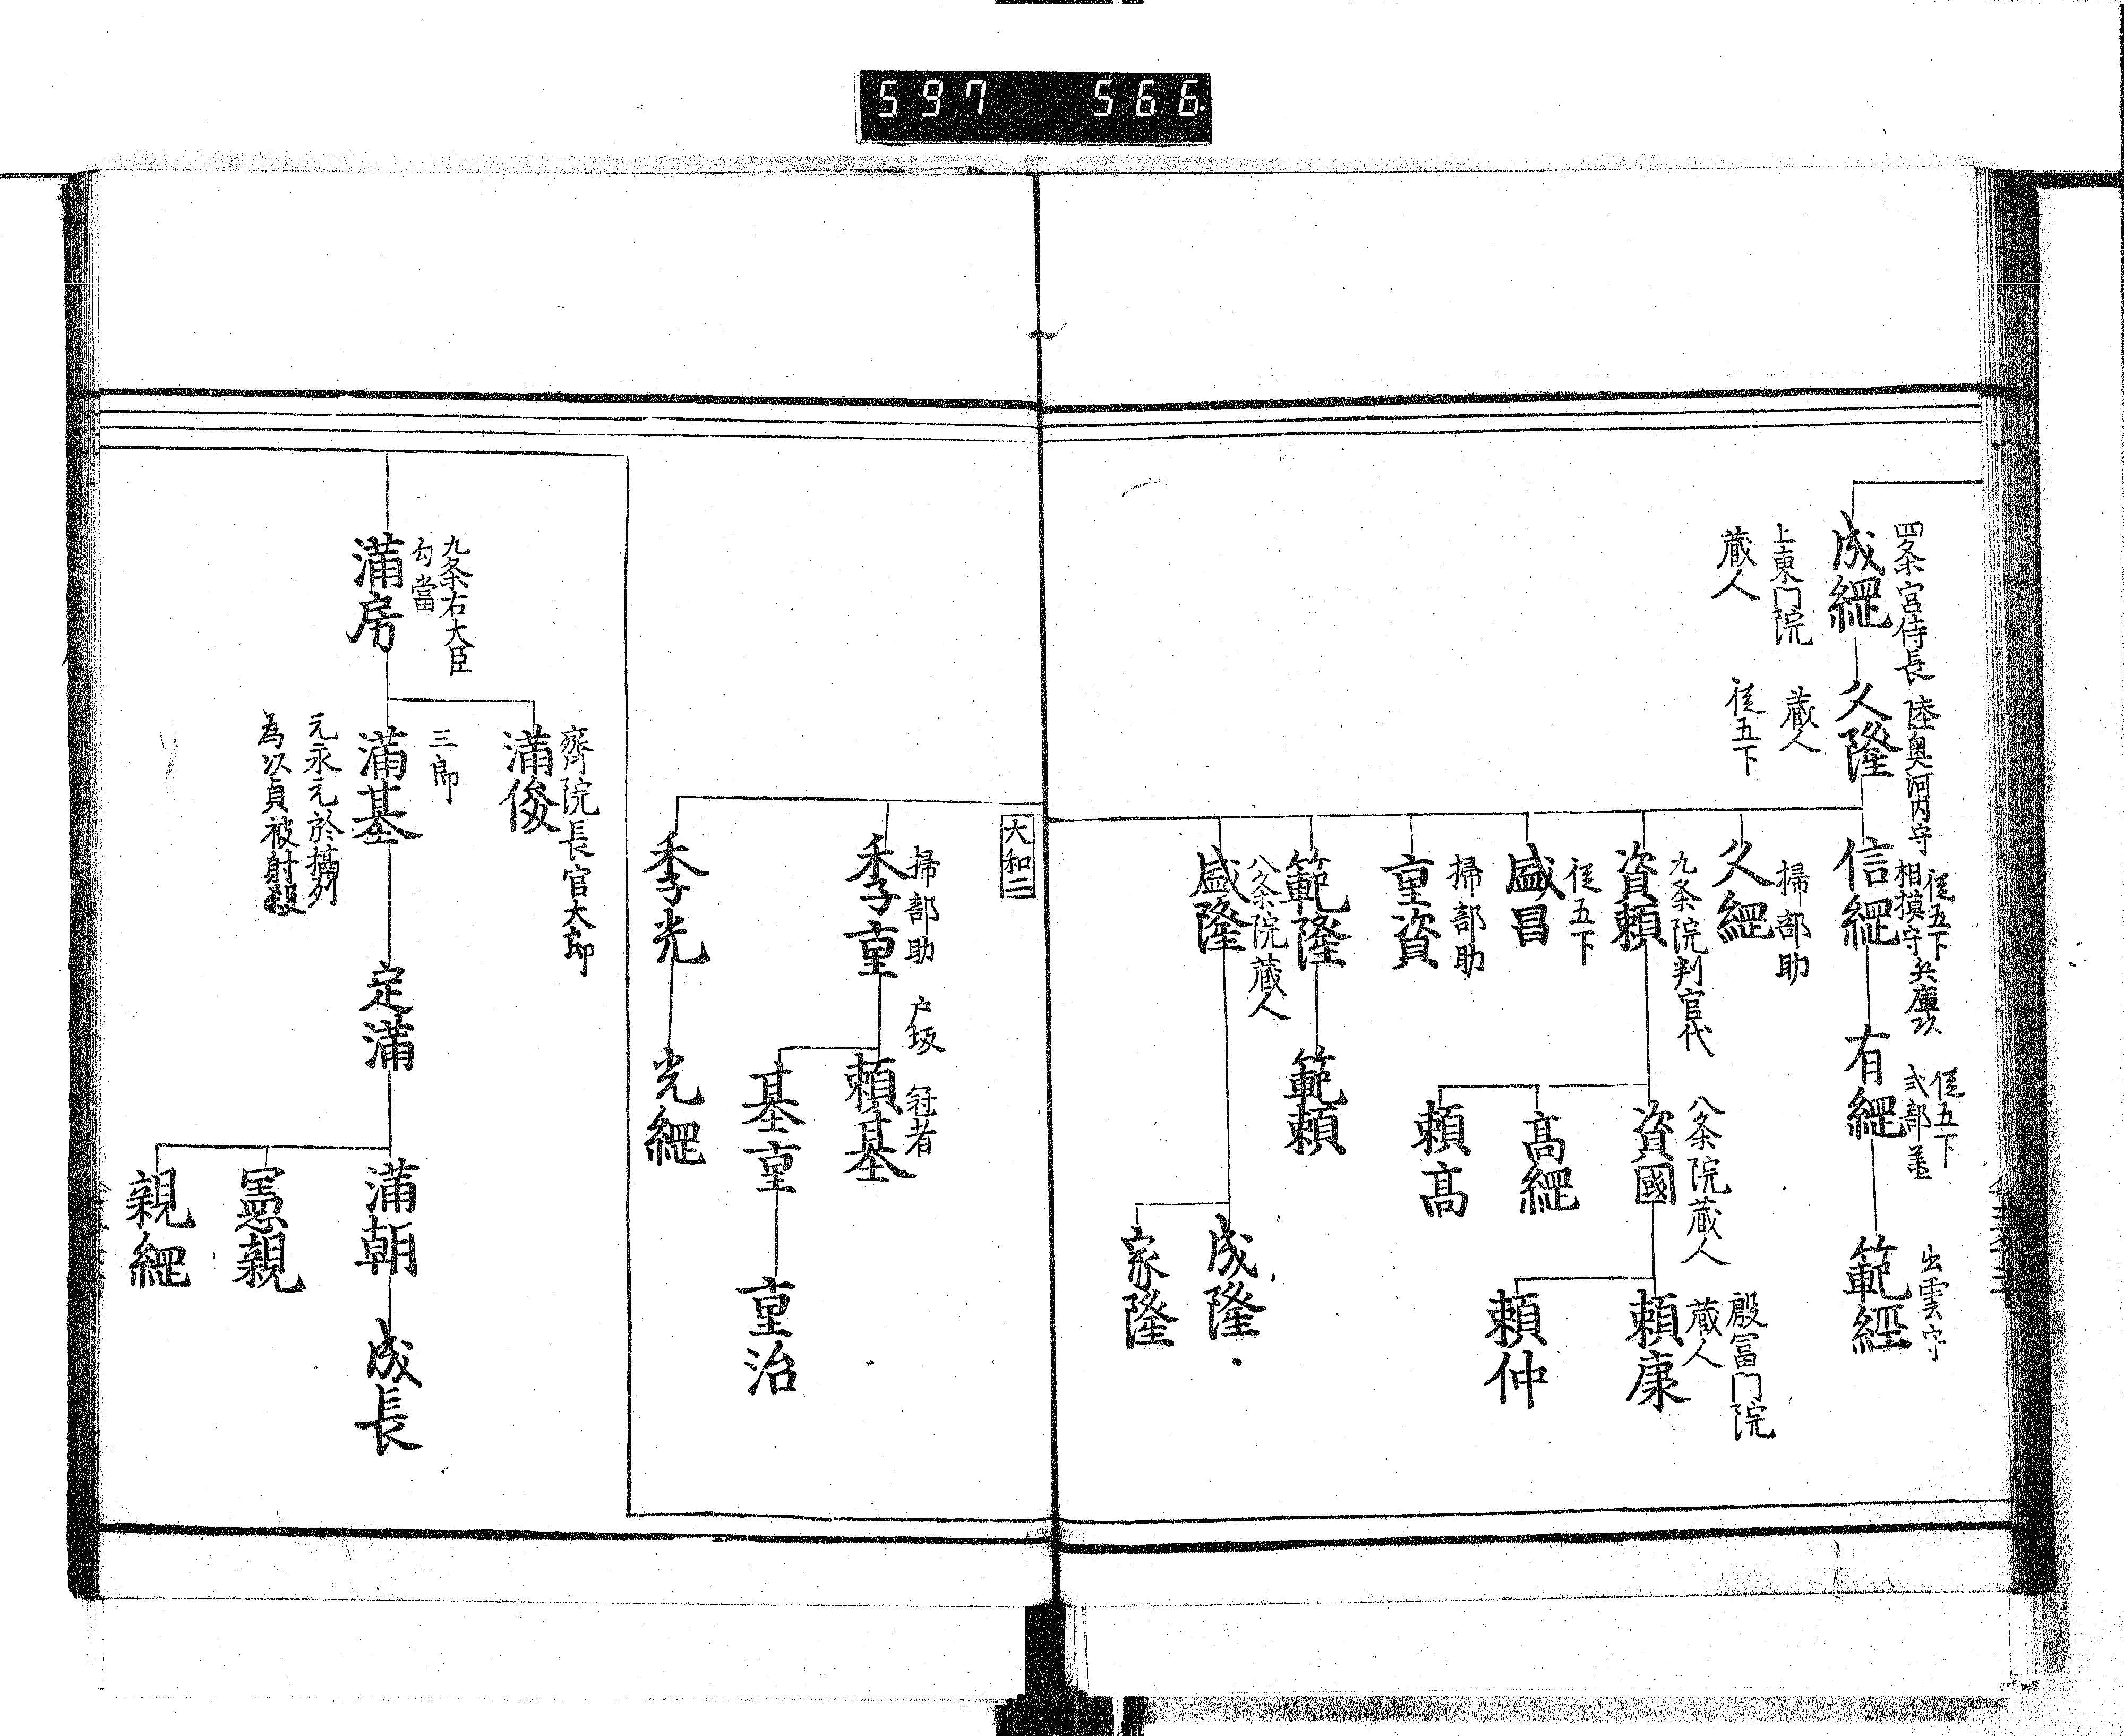 597 566
四条宮侍長
成經
上東門院
蔵人
陸奥河内守
久隆
蔵人
従五下
従五下
相摸守兵庫頭
信經
従五下
式部丞
有經
出雲守
範経
掃部助
久經
九条院判官代
資頼
八条院蔵人
資國
殷冨門院
蔵人
頼康
頼仲
高經
頼高
従五下
盛昌
掃部助
重資
範隆
範頼
八条院蔵人
盛隆
成隆
家隆
大和二
掃部助
季重
戸坂冠者
頼基
基重
重治
季光
光經
九条右大臣
勾當
満房
齊院長官大郎
満俊
三郎
満基
元永元於攝州
為以貞被射殺
定満
満朝
成長
憲親
親經